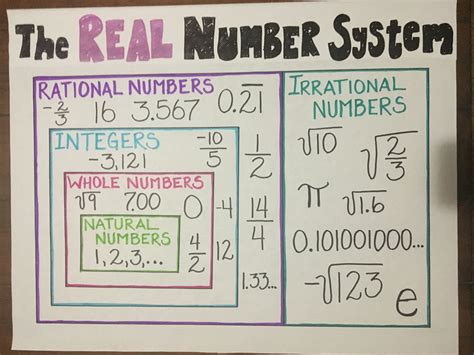 The REAL NUMBER SYSTEM
RATIONAL NUMBERS
-2/3 16 3.567 0.2̅1̅
INTEGERS
-3,121
-10/5
WHOLE NUMBERS
√9 7.00 0
NATURAL
NUMBERS
1,2,3,...
4/2
-4
12
1/2
14/4
1.33...
IRRATIONAL
NUMBERS
√10 √2/3
π √1.6
0.101001000...
-√123 e